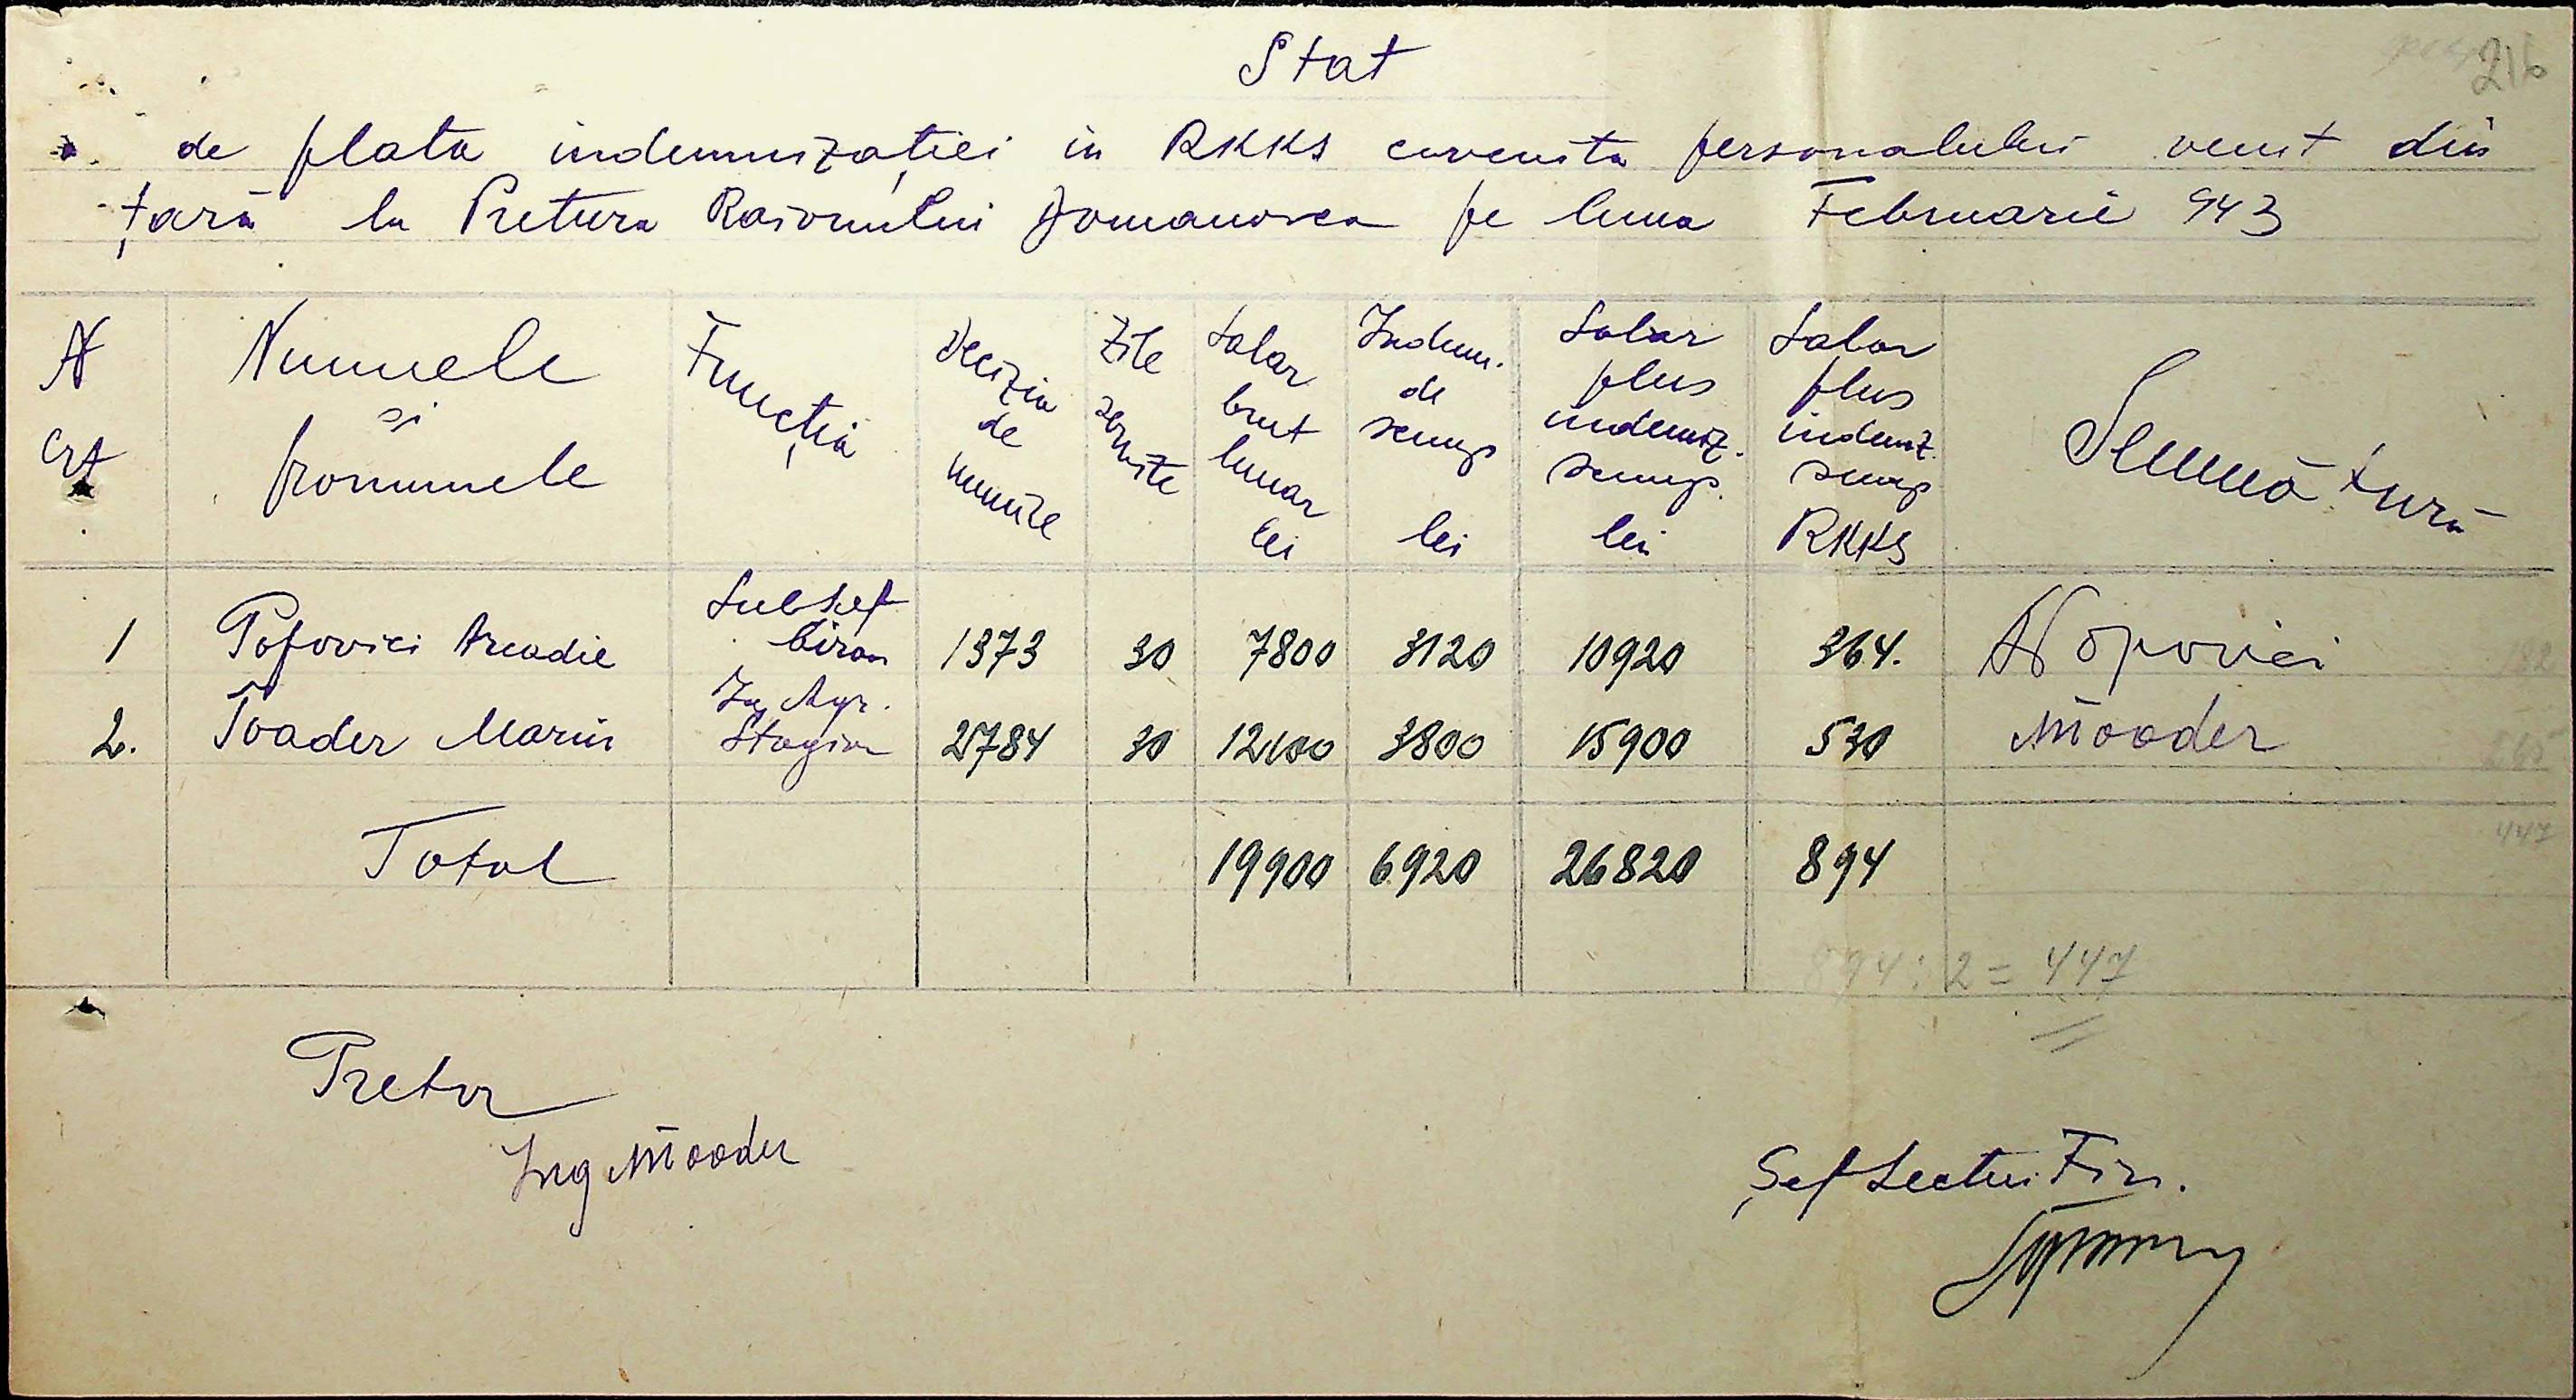 216
Stat
de plata indemnizației in RKKS cuvenita personalului venit din
țară la Pretura Raionului Domanovca pe luna Februarie 943
N Crt | Numele si pronumele | Funcția | Decizia de numire | Zile servite | Salar brut lunar lei | Indemn. de scump lei | Salar plus indemniz. scump. lei | Salar plus indemiz. scump RKKS | Semnătură
1 | Popovici Arcadie | Subșef birou | 1373 | 30 | 7800 | 3120 | 10920 | 364. | APopovici
2. | Toader Marin | Ing Agr. Stagiar | 2784 | 30 | 12100 | 3800 | 15900 | 530 | MToader
Total | 19900 | 6920 | 26820 | 894
182
265
447
894:2=447
Pretor
Ing MToader
Șef Sectui Fin.